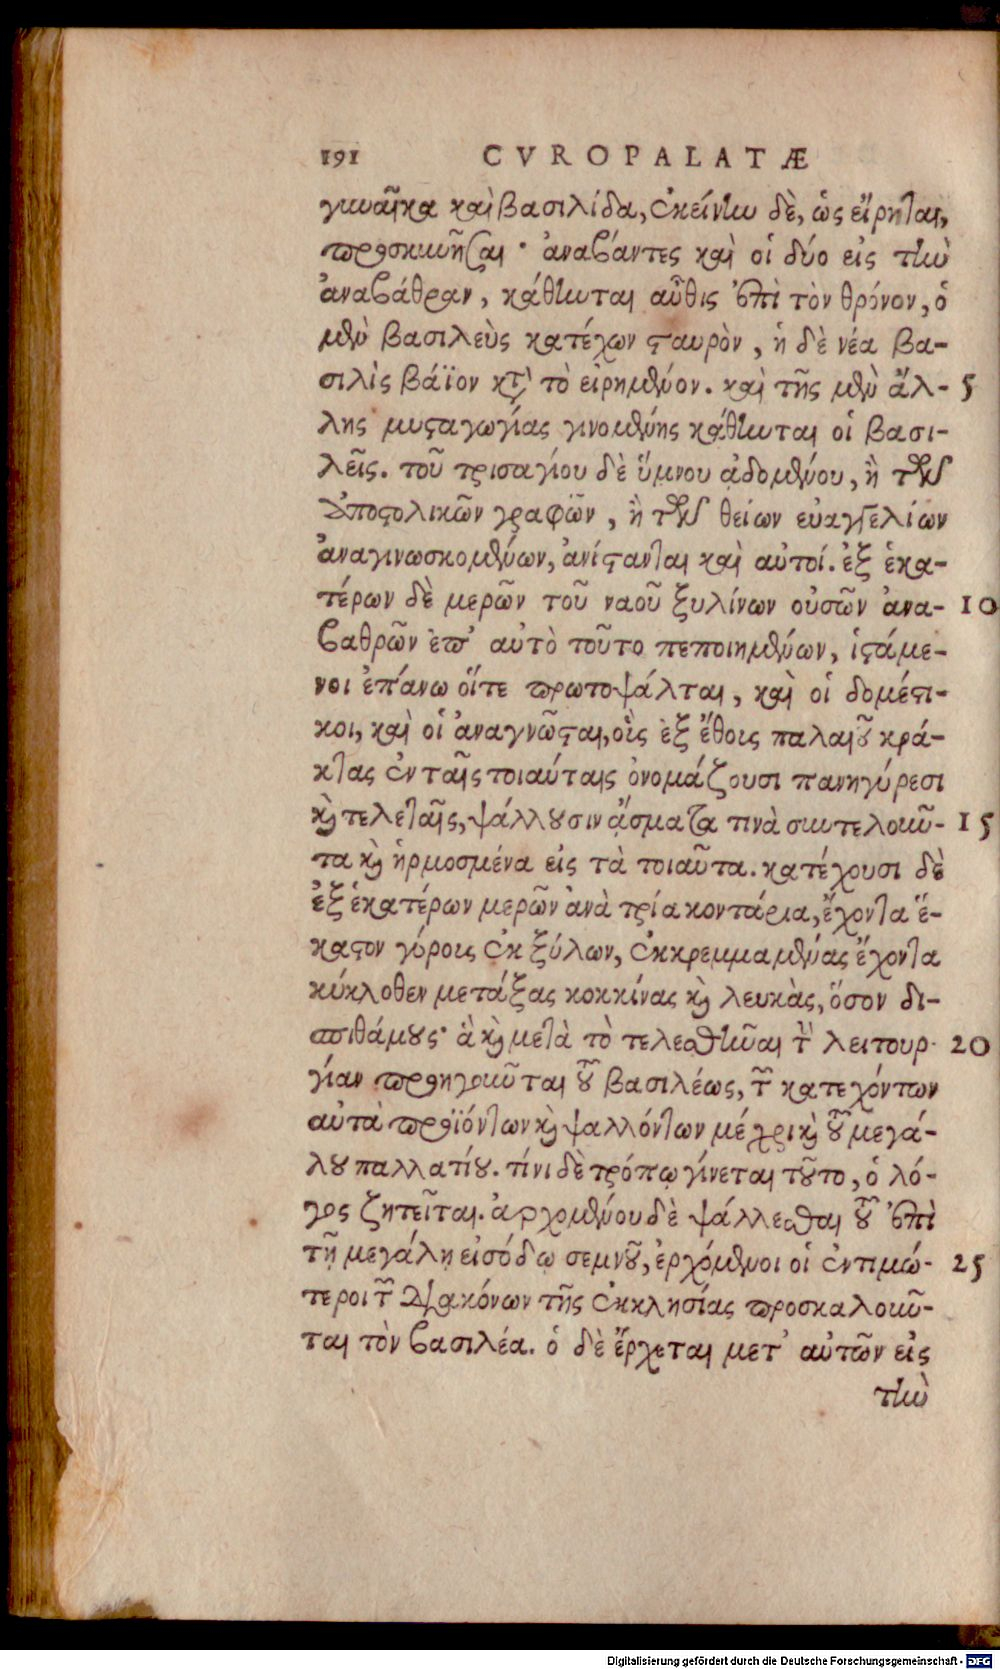 191 CVROPALATÆ
γυναῖκα καὶ βασιλίδα, ἐκείνην δὲ, ὡς εἴρηται,
προσκυνῆσαι· ἀναβάντες καὶ οἱ δύο εἰς τὴν
ἀναβάθραν, κάθηνται αὖθις ἐπὶ τὸν θρόνον, ὁ
μὲν βασιλεὺς κατέχων σταυρὸν, ἡ δὲ νέα βα-
σιλὶς βάϊον κτ' τὸ εἰρημένον. καὶ τῆς μὲν ἄλ- 5
λης μυσταγωγίας γινομένης κάθηνται οἱ βασι-
λεῖς. τοῦ τρισαγίου δὲ ὕμνου ᾀδομένου, ἢ τῶν
ἀποστολικῶν γραφῶν, ἢ τῶν θείων εὐαγγελίων
ἀναγινωσκομένων, ἀνίστανται καὶ αὐτοί. ἐξ ἑκα-
τέρων δὲ μερῶν τοῦ ναοῦ ξυλίνων οὐσῶν ἀνα- 10
βαθρῶν ἐπ' αὐτὸ τοῦτο πεποιημένων, ἱστάμε-
νοι ἐπάνω οἵτε πρωτοψάλται, καὶ οἱ δομέστι-
κοι, καὶ οἱ ἀναγνῶσται, οἳς ἐξ ἔθους παλαιοῦ κρά-
κτας ἐν ταῖς τοιαύταις ὀνομάζουσι πανηγύρεσι
καὶ τελεταῖς, ψάλλουσιν ᾄσματα τινὰ συντελοῦν- 15
τα καὶ ἡρμοσμένα εἰς τὰ τοιαῦτα. κατέχουσι δὲ
ἐξ ἑκατέρων μερῶν ἀνὰ τρία κοντάρια, ἔχοντα ἕ-
καστον γύροις ἐκ ξύλων, ἐκκρεμμαμένας ἔχοντα
κύκλοθεν μετάξας κοκκίνας καὶ λευκὰς, ὅσον δι-
σπιθάμους· ἃ καὶ μετὰ τὸ τελεσθῆναι τὴν λειτουρ- 20
γίαν προηγοῦνται τοῦ βασιλέως, τῶν κατεχόντων
αὐτὰ προϊόντων καὶ ψαλλόντων μέχρι καὶ τοῦ μεγά-
λου παλλατίου. τίνι δὲ τρόπῳ γίνεται τοῦτο, ὁ λό-
γος ζητεῖται. ἀρχομένου δὲ ψάλλεσθαι τοῦ ἐπὶ
τῇ μεγάλῃ εἰσόδῳ σεμνοῦ, ἐρχόμενοι οἱ ἐντιμώ- 25
τεροι τῶν διακόνων τῆς ἐκκλησίας προσκαλοῦν-
ται τὸν βασιλέα. ὁ δὲ ἔρχεται μετ' αὐτῶν εἰς
τὴν
Digitalisierung gefördert durch die Deutsche Forschungsgemeinschaft - DFG